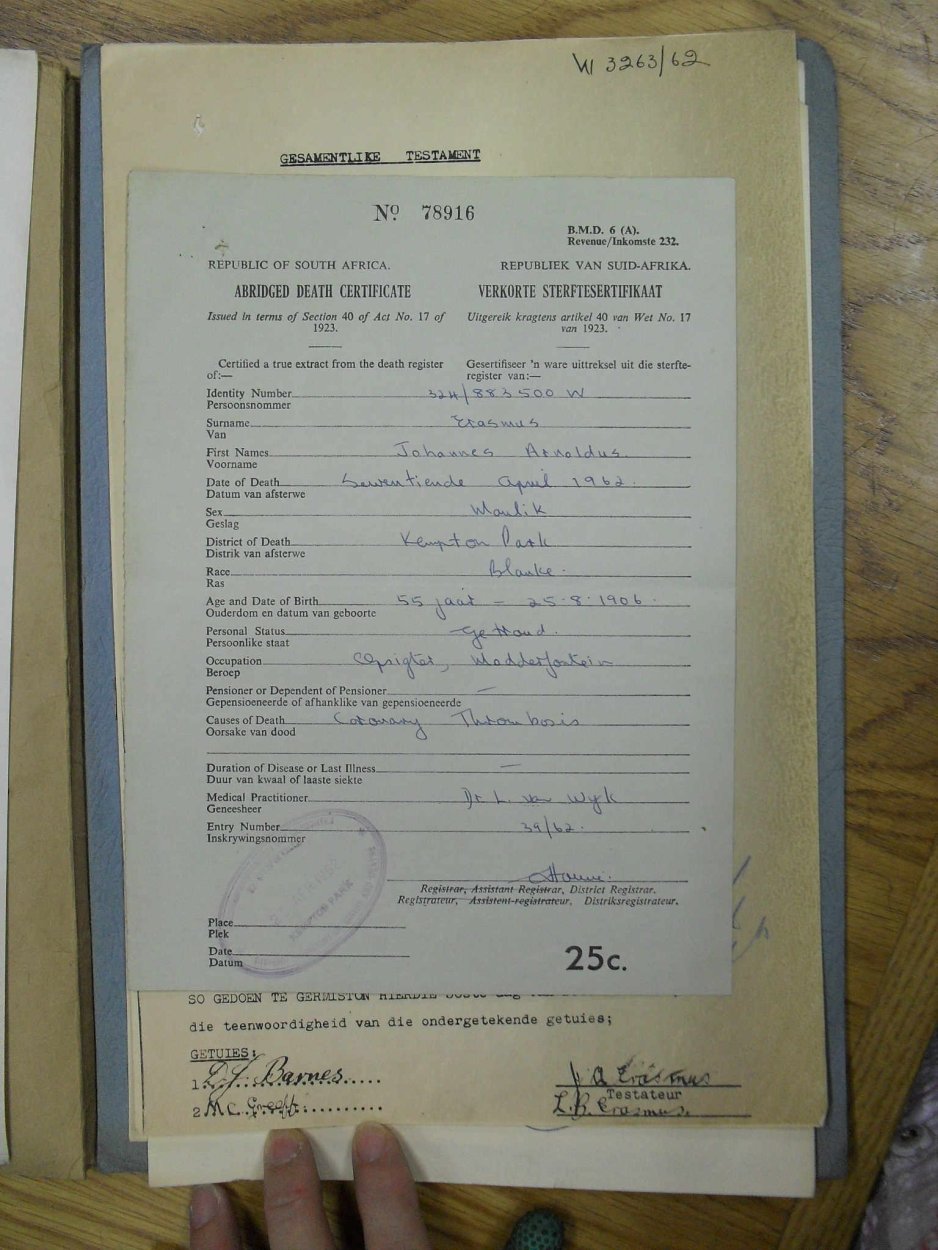 W 3263/62
GESAMENTLIKE TESTAMENT
No 78916
B.M.D. 6 (A).
Revenue/Inkomste 232.
REPUBLIC OF SOUTH AFRICA. REPUBLIEK VAN SUID-AFRIKA.
ABRIDGED DEATH CERTIFICATE VERKORTE STERFTESERTIFIKAAT
Issued in terms of Section 40 of Act No. 17 of Uitgereik kragtens artikel 40 van Wet No. 17
1923. van 1923.
Certified a true extract from the death register Gesertifiseer 'n ware uittreksel uit die sterfte-
of:— register van:—
Identity Number 324/883500 W
Persoonsnommer
Surname Erasmus
Van
First Names Johannes Arnoldus.
Voorname
Date of Death Sewentiende April 1962.
Datum van afsterwe
Sex Manlik
Geslag
District of Death Kempton Park
Distrik van afsterwe
Race Blanke.
Ras
Age and Date of Birth 55 jaar - 25.8.1906.
Ouderdom en datum van geboorte
Personal Status Getroud.
Persoonlike staat
Occupation Opsigter, Modderfontein
Beroep
Pensioner or Dependent of Pensioner —
Gepensioeneerde of afhanklike van gepensioeneerde
Causes of Death Coronary Thrombosis
Oorsake van dood
Duration of Disease or Last Illness —
Duur van kwaal of laaste siekte
Medical Practitioner Dr L. van Wyk
Geneesheer
Entry Number 39/62.
Inskrywingsnommer
Registrar, Assistant Registrar, District Registrar.
Registrateur, Assistent-registrateur, Distriksregistrateur.
KEMPTON PARK
Place
Plek
Date
Datum
25c.
SO GEDOEN TE GERMISTON HIERDIE
die teenwoordigheid van die ondergetekende getuies;
GETUIES:
1. Barnes J A Erasmus
Testateur
2. M.C. Greeff L.B. Erasmus.